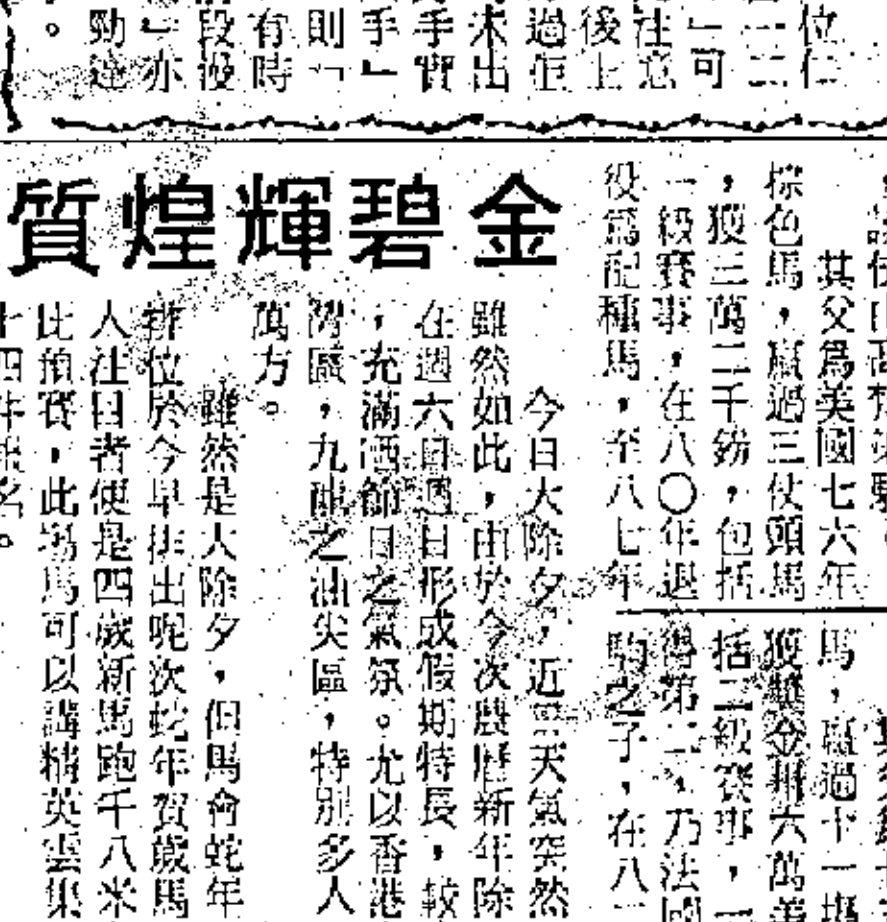 位仁
一二
」可
注意
後上
過但
未出
手實
手」
則「
有時
段後
」亦
勁達
。
其父爲美國七六年
棕色馬，贏過三仗頭馬
，獲三萬二千鎊，包括
一級賽事，在八〇年退
役爲配種馬，至八七年
馬，贏過十一場
獲獎金卅六萬美
括二級賽事，一
得第二，乃法國
駒之子，在八一
金碧輝煌質
今日大除夕，近日天氣突然
雖然如此，由於今次農曆新年除
在週六日週日形成假期特長，較
，充滿洒節日之氣氛。尤以香港
灣區，九龍之油尖區，特別多人
萬方。
雖然是大除夕，但馬會蛇年
排位於今早排出呢次蛇年賀歲馬
人注目者便是四歲新馬跑千八米
此預賽，此場馬可以講精英雲集
十四件報名。